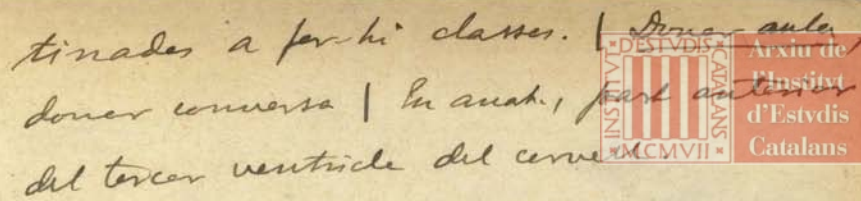 tinades a fer-hi classes. | Donar aula,
donar conversa | En anat., part anterior
del tercer ventricle del cervell.
INSTITVT D'ESTVDIS CATALANS
MCMVII
Arxiu de
l'Institvt
d'Estvdis
Catalans